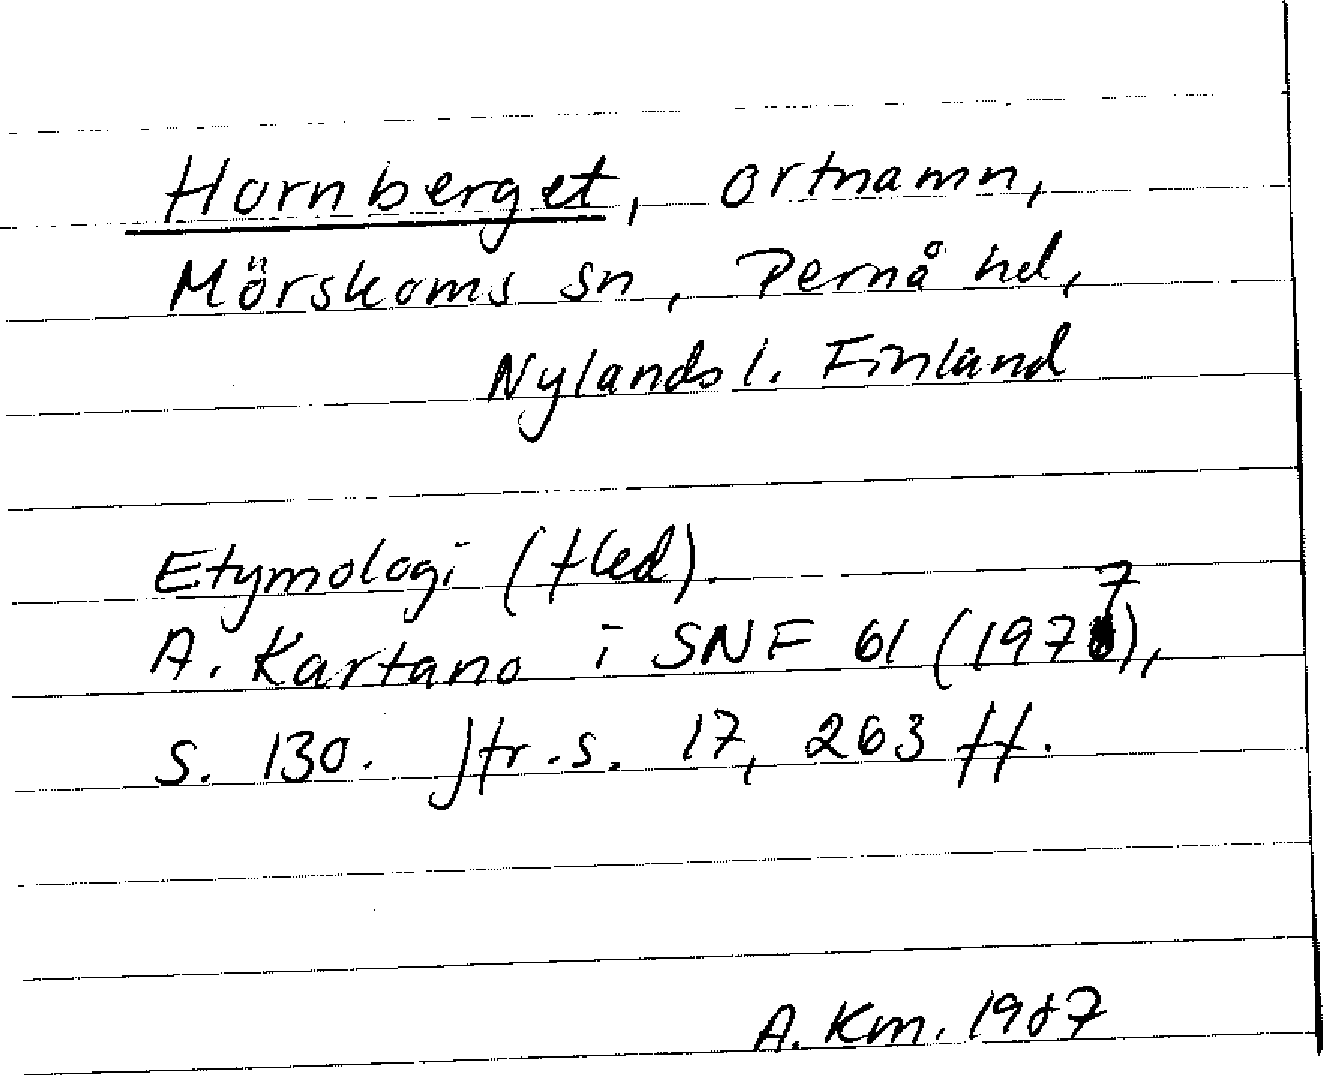 Hornberget, ortnamn,
Mörskoms sn, Pernå hd,
Nylands l. Finland
Etymologi (fled).
A. Kartano i SNF 61 (1977),
s. 130. Jfr. s. 17, 263 ff.
A. Km. 1987